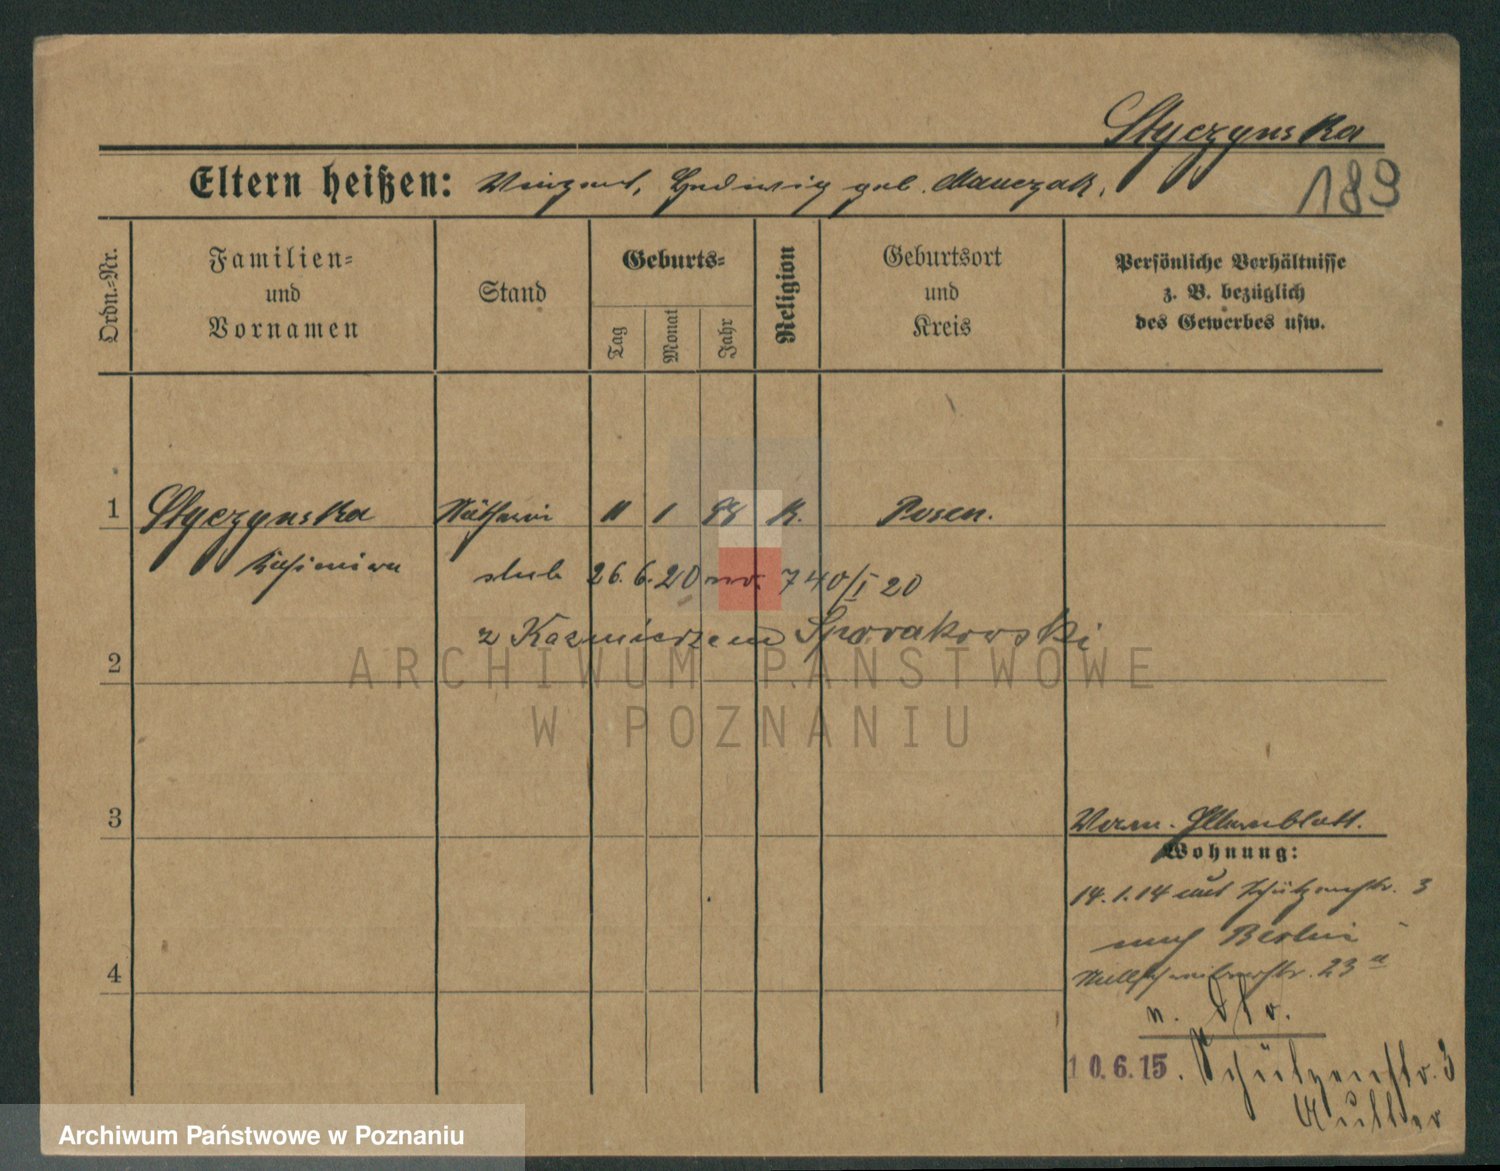 Styczynska
Eltern heißen: Vinzent, Hedwig geb. Manczak.
189
Ordn.-Nr.
Familien-
und
Vornamen
Stand
Geburts-
Tag
Monat
Jahr
Religion
Geburtsort
und
Kreis
Persönliche Verhältnisse
z. B. bezüglich
des Gewerbes usw.
1 Styczynska Näherin 11 1 98 K. Posen.
Kasimira
ślub 26. 6. 20 nr. 740/I 20
z Kazmierzem Sporakowski
2
3
Verm. Elternblatt.
Wohnung:
14.1.14 aus Schützenstr. 3
nach Berlin
23a
4
10.6.15. Schützenstr. 3
Mutter
ARCHIWUM PAŃSTWOWE
W POZNANIU
Archiwum Państwowe w Poznaniu